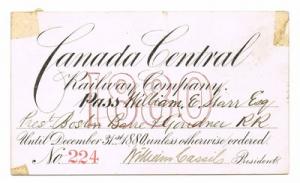 Canada Central
Railway Company.
1880
Pass William E. Starr Esq
Prest Boston Barre & Gardner RR
Until December 31st 1880, unless otherwise ordered.
No. 224 William Cassils President